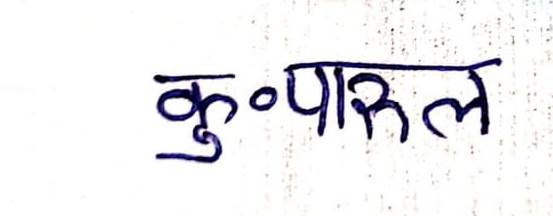 कु॰पारुल